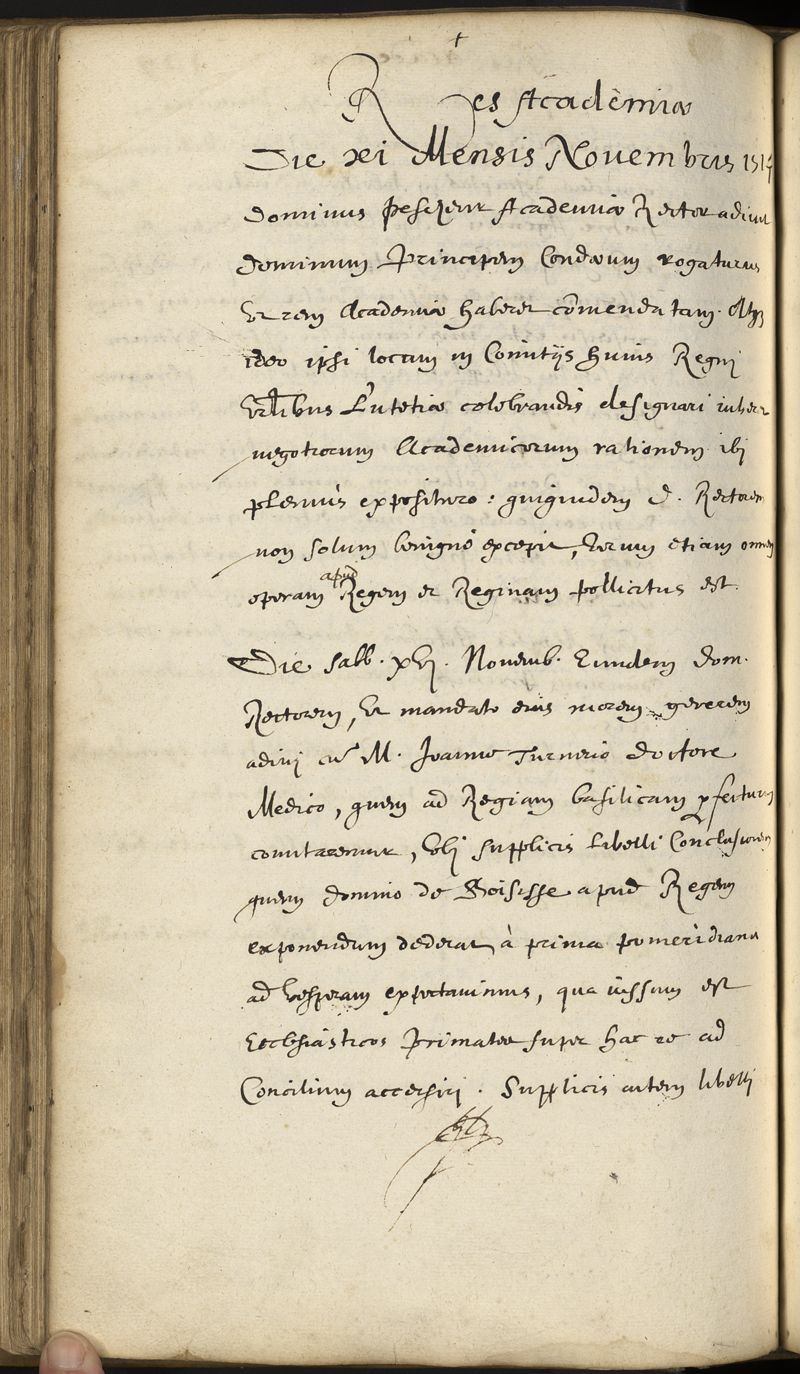 Res Academiæ
Die xi Mensis Nouembris
Dominus Academiæ Rector adiuit
Dominum Principem Condæum rogaturus
Vt rem Academiæ haberet cõmendatam.
ideo ipsi locum in Comitijs huius Regni
Lutetiæ celebrandis designari iuberet
negotiorum Academicorum rationem ibj
pleniùs exposituro: quiquidem D. Rectorem
non solum benignè excepit, Verum etiam omnem
operam apud Regem et Reginam pollicitus est.
Die Sabb. xvj. Nouemb. Eundem dom.
Rectorem, Vt mandato eius morem gererem
adiuj cũ M. Joanne Turnerio doctore
Medico, quem ad Regiam basilicam profectum
comitaremur, Vbj supplicis libelli Conclusionem
quem domino de Boisisse apud Regem
exponendum dederat, à prima pomeridiana
ad Vesperam expectauimus, qua iussum est
Ecclesiasticos Primates super hac re ad
Concilium accersirj. Supplicis autem libellj